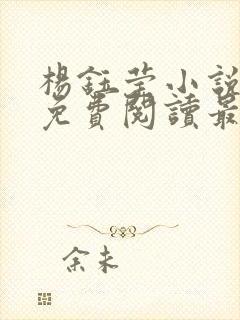 楊鈺瑩小說
免費閱讀最
余未